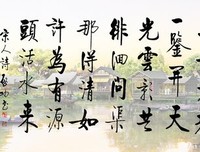 一鑒开天
光雲影共
徘徊问渠
那得清如
許為有源
頭活水来
宋人詩